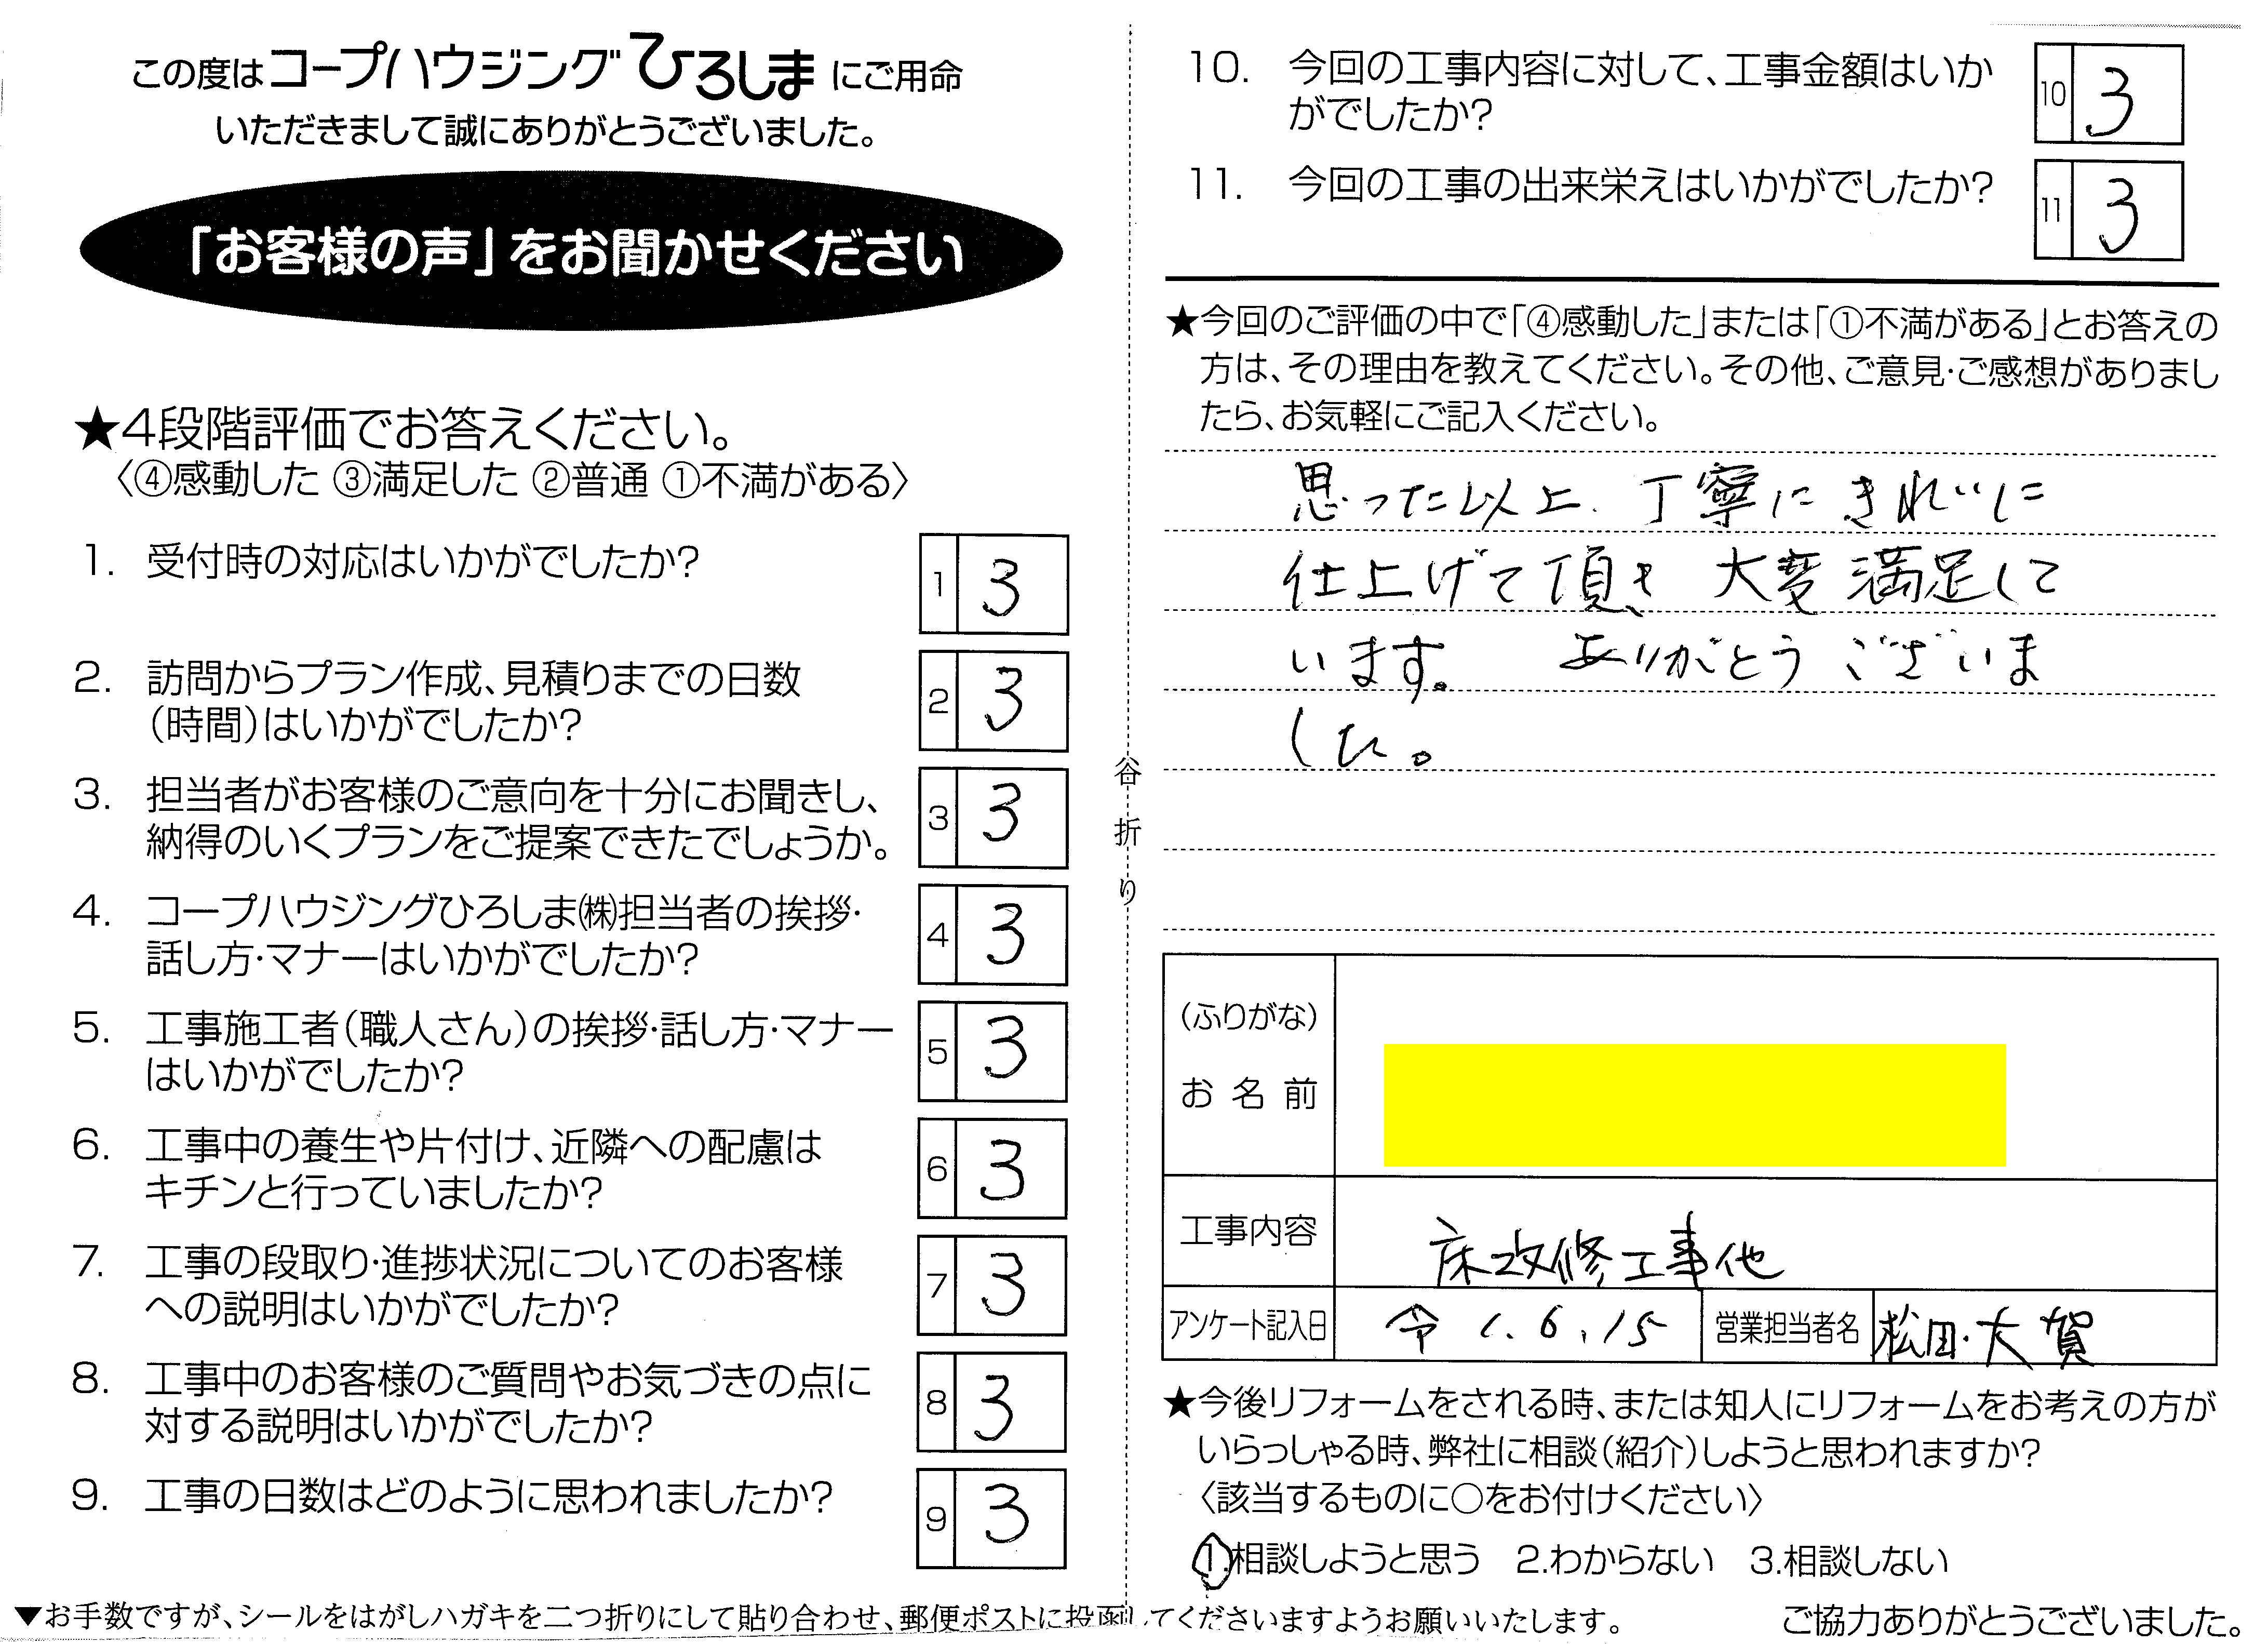 この度はコープハウジングひろしまにご用命
いただきまして誠にありがとうございました。
「お客様の声」をお聞かせください
★4段階評価でお答えください。
〈④感動した ③満足した ②普通 ①不満がある〉
1. 受付時の対応はいかがでしたか?
1 3
2. 訪問からプラン作成、見積りまでの日数
(時間)はいかがでしたか?
2 3
3. 担当者がお客様のご意向を十分にお聞きし、
納得のいくプランをご提案できたでしょうか。
3 3
4. コープハウジングひろしま㈱担当者の挨拶・
話し方・マナーはいかがでしたか?
4 3
5. 工事施工者(職人さん)の挨拶・話し方・マナー
はいかがでしたか?
5 3
6. 工事中の養生や片付け、近隣への配慮は
キチンと行っていましたか?
6 3
7. 工事の段取り・進捗状況についてのお客様
への説明はいかがでしたか?
7 3
8. 工事中のお客様のご質問やお気づきの点に
対する説明はいかがでしたか?
8 3
9. 工事の日数はどのように思われましたか?
9 3
谷折り
10. 今回の工事内容に対して、工事金額はいか
がでしたか?
10 3
11. 今回の工事の出来栄えはいかがでしたか?
11 3
★今回のご評価の中で「④感動した」または「①不満がある」とお答えの
方は、その理由を教えてください。その他、ご意見・ご感想がありまし
たら、お気軽にご記入ください。
思った以上、丁寧にきれいに
仕上げて頂き 大変満足して
います。 ありがとうございま
した。
(ふりがな)
お名前
工事内容 床改修工事他
アンケート記入日 令1.6.15 営業担当者名 松田・大賀
★今後リフォームをされる時、または知人にリフォームをお考えの方が
いらっしゃる時、弊社に相談(紹介)しようと思われますか?
〈該当するものに○をお付けください〉
1.相談しようと思う 2.わからない 3.相談しない
▼お手数ですが、シールをはがしハガキを二つ折りにして貼り合わせ、郵便ポストに投函してくださいますようお願いいたします。
ご協力ありがとうございました。